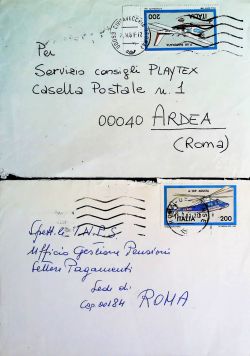 ITALIA 200
Per
Servizio consigli PLAYTEX
Casella Postale n. 1
00040 ARDEA
(Roma)
ITALIA 200
Spett.le I.N.P.S.
Ufficio Gestione Pensioni
Settori Pagamenti
Sede di
Cap 00184 ROMA